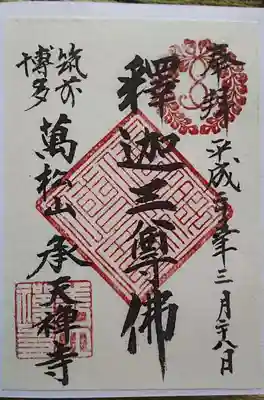 奉拝 平成 年三月 八日
釋迦三尊佛
筑前
博多
萬松山 承天禅寺